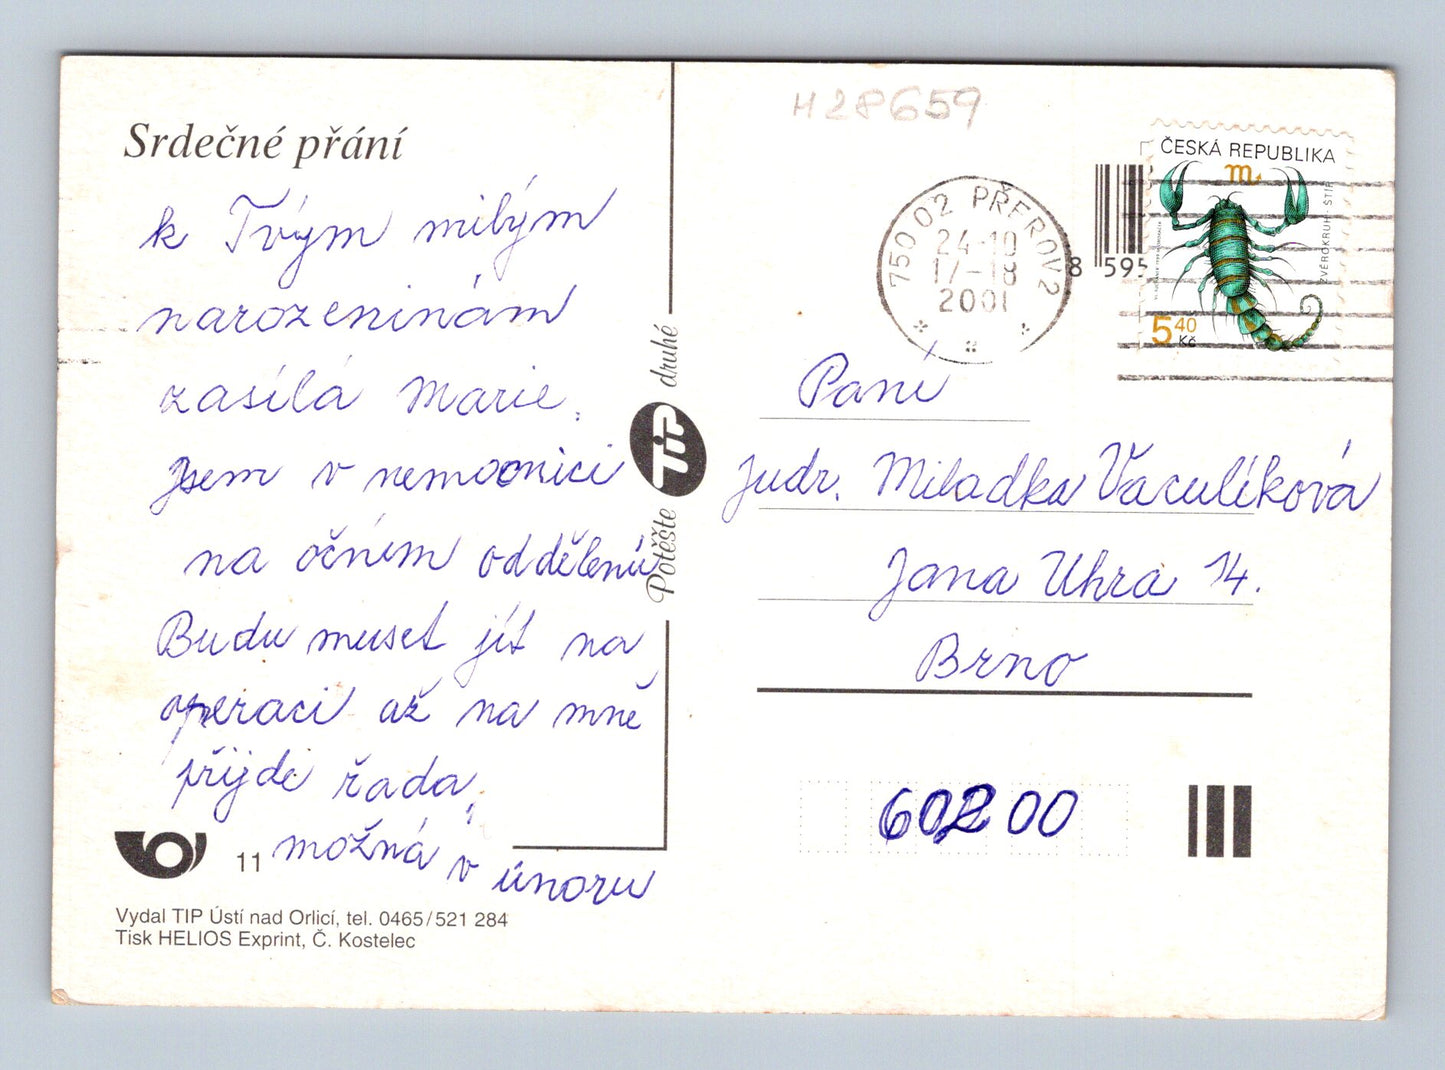 Srdečné přání
k Tvým milým
narozeninám
zasílá Marie.
Jsem v nemocnici
na očním oddělení
Budu muset jít na
operaci až na mně
přijde řada,
možná v únoru
11
Vydal TIP Ústí nad Orlicí, tel. 0465/521 284
Tisk HELIOS Exprint, Č. Kostelec
Potěšte TIP druhé
H28659
750 02 PŘEROV 2
24-10
17-18
2001
8 595
ČESKÁ REPUBLIKA
ZVĚROKRUH - ŠTÍR
5 40
Kč
Paní
Judr. Miladka Vaculíková
Jana Uhra 14.
Brno
60200